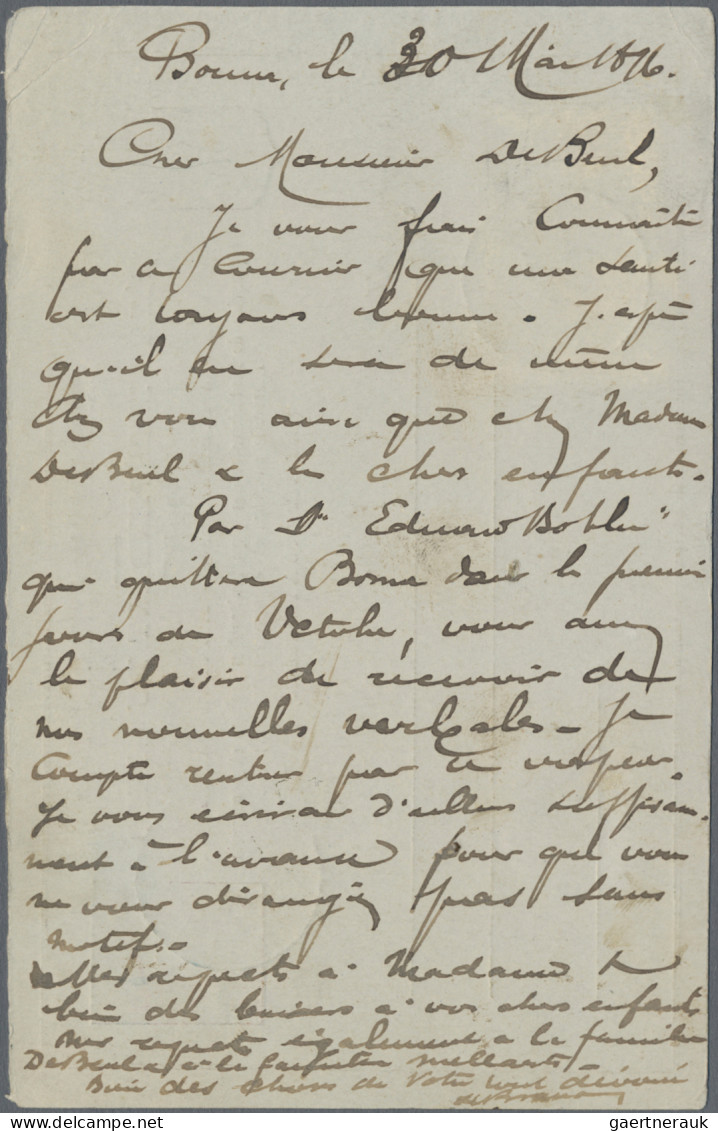 Boma, le 30 Mai 1896.
Cher Monsieur De Beul,
Je vous fais Connaitre
par ce Courrier que ma santé
est toujours bonne. J'espère
qu'il en sera de même
chez vous ainsi que chez Madame
De Beul & les chers enfants.
Par Edward Bohlen
qui quittera Boma dans les premiers
jours de, vous aurez
le plaisir de recevoir de
mes nouvelles verbales. Je
Compte rentrer par ce vapeur.
Je vous écrirai d'ailleurs suffisam-
ment à l'avance pour que vous
ne vous dérangiez pas sans
motif.
Mes respects à Madame &
bien des baisers à vos chers enfants
Mes respects également à la famille
De Beul & à la famille
Bien des choses de Votre tout dévoué
gaertnerauk ©